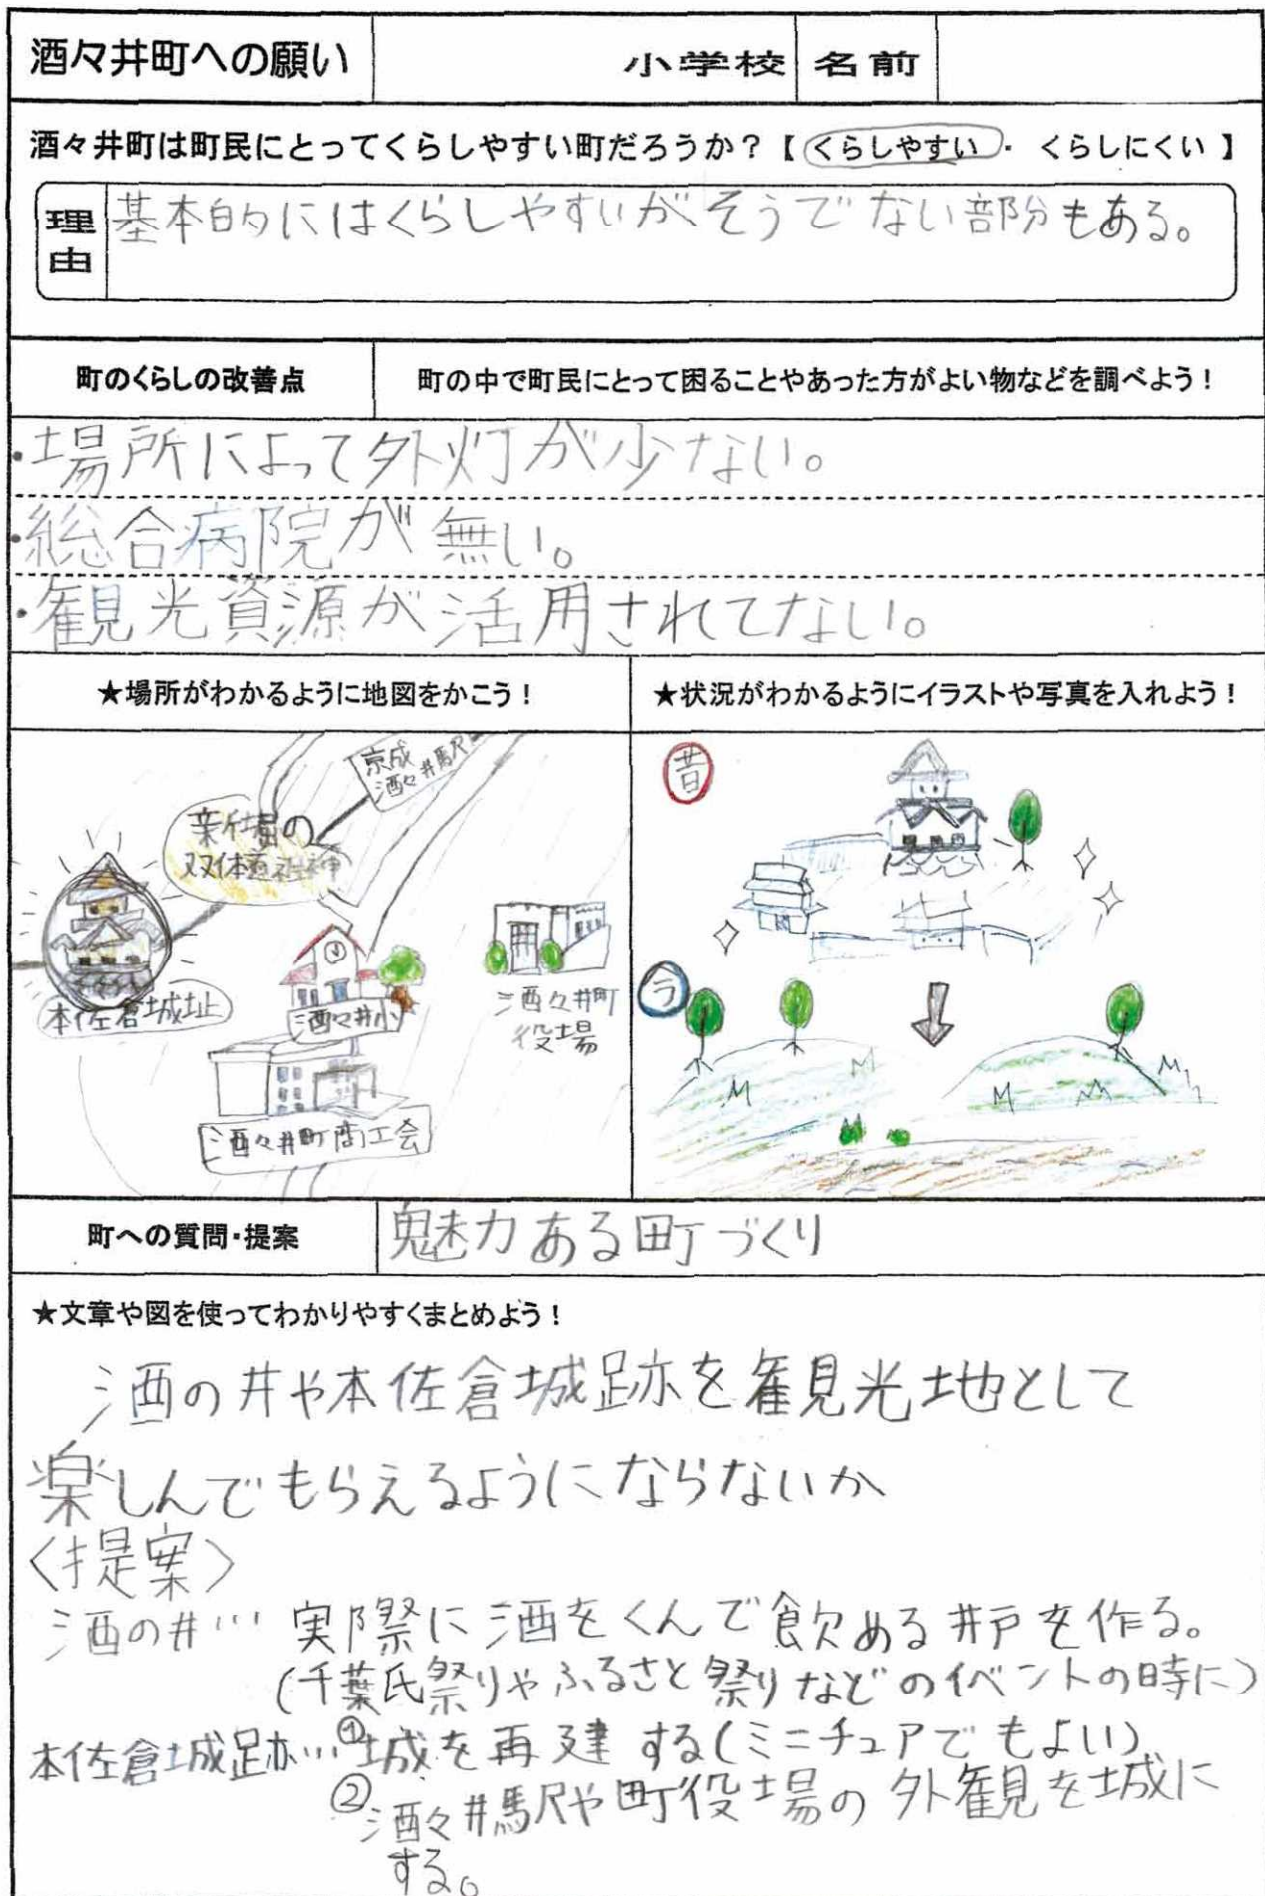 酒々井町への願い 小学校 名前
酒々井町は町民にとってくらしやすい町だろうか？【 くらしやすい ・ くらしにくい 】
理由
基本的にはくらしやすいが、そうでない部分もある。
町のくらしの改善点
町の中で町民にとって困ることやあった方がよい物などを調べよう！
・場所によって外灯が少ない。
・総合病院が無い。
・観光資源が活用されてない。
★場所がわかるように地図をかこう！
京成
酒々井駅
新堀の
双体道祖神
本佐倉城址
酒々井小
酒々井町
役場
酒々井町商工会
★状況がわかるようにイラストや写真を入れよう！
昔
今
町への質問・提案
魅力ある町づくり
★文章や図を使ってわかりやすくまとめよう！
酒の井や本佐倉城跡を観光地として
楽しんでもらえるようにならないか
〈提案〉
酒の井… 実際に酒をくんで飲める井戸を作る。
(千葉氏祭りやふるさと祭りなどのイベントの時に)
本佐倉城跡…①城を再建する(ミニチュアでもよい)
②酒々井駅や町役場の外観を城に
する。